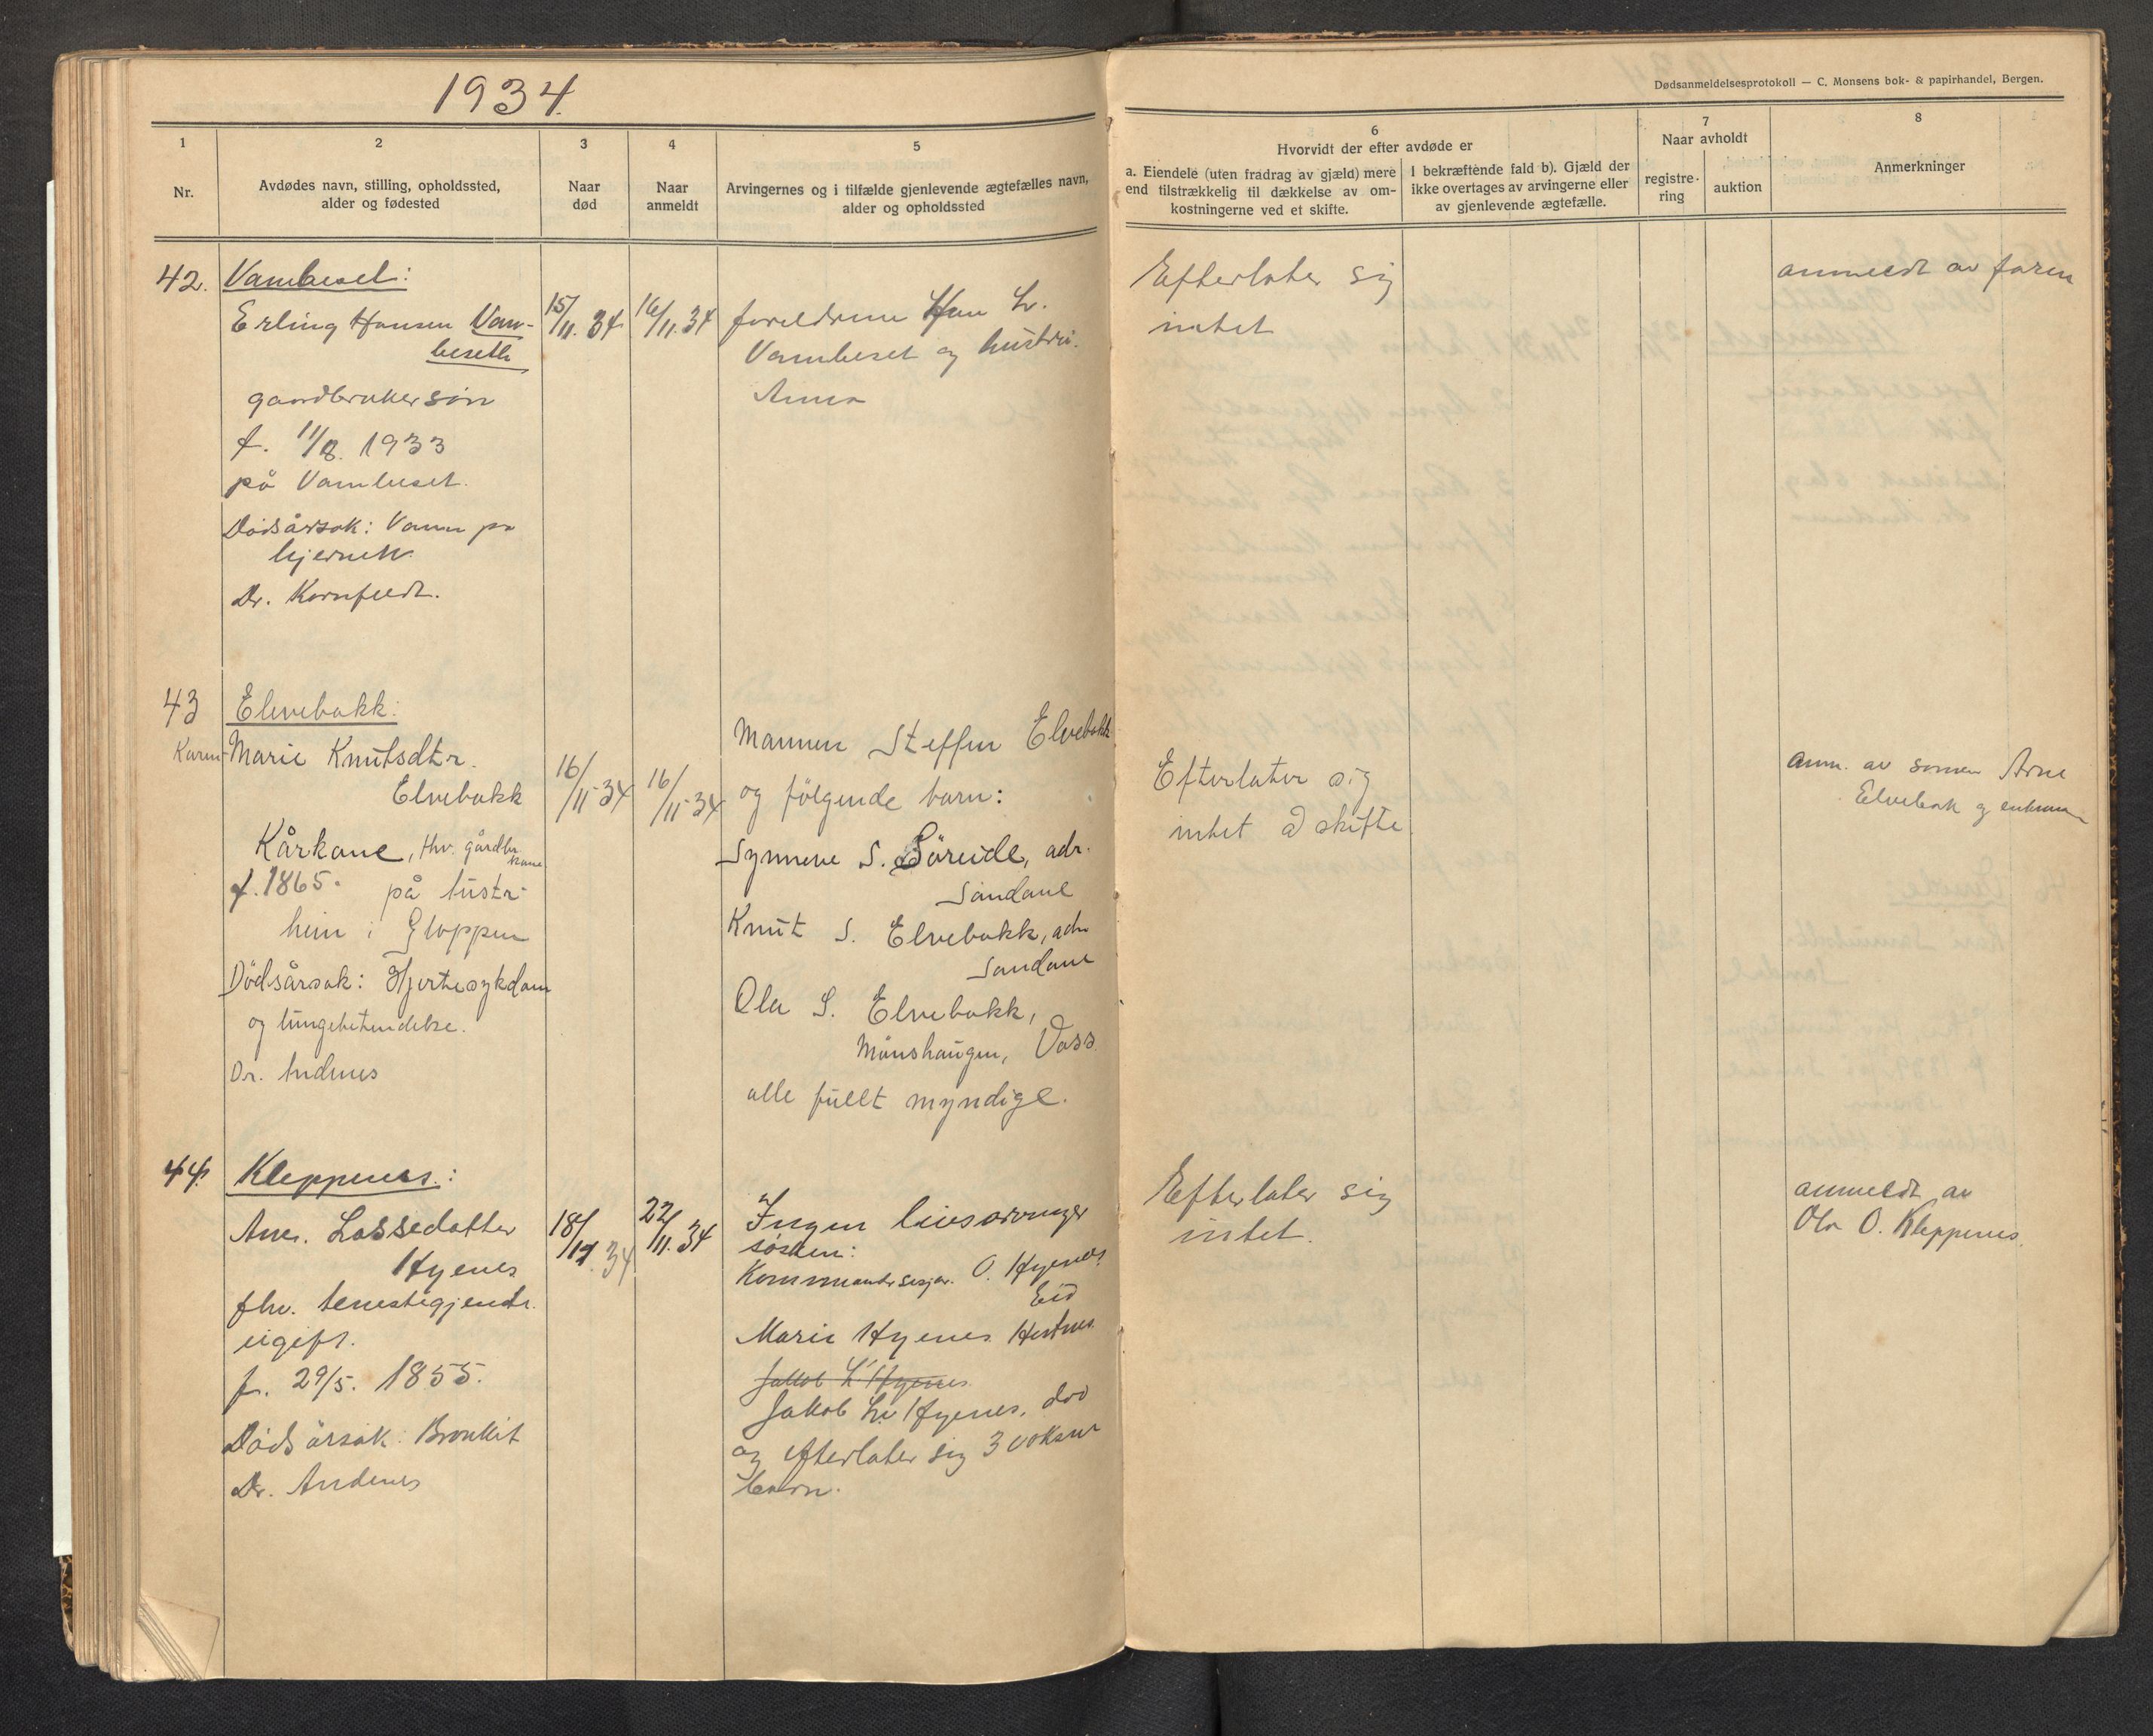 1934.
Dødsanmeldelsesprotokoll — C. Monsens bok- & papirhandel, Bergen.
1
Nr.
2
Avdødes navn, stilling, opholdssted,
alder og fødested
3
Naar
død
4
Naar
anmeldt
5
Arvingernes og i tilfælde gjenlevende ægtefælles navn,
alder og opholdssted
6
Hvorvidt der efter avdøde er
a. Eiendele (uten fradrag av gjæld) mere
end tilstrækkelig til dækkelse av om-
kostningerne ved et skifte.
I bekræftende fald b). Gjæld der
ikke overtages av arvingerne eller
av gjenlevende ægtefælle.
7
Naar avholdt
registre-
ring
auktion
8
Anmerkninger
42.
Vambeset:
Erling Hansen Vam-
beseth
gaardbrukersøn
f. 11/8. 1933
på Vambeset.
Dødsårsak: Vann på
hjernen.
Dr. Kornfeldt.
15/11. 34
16/11. 34
foreldrene Han L.
Vambeset og hustru
Anna
Efterlater sig
intet
anmeldt av faren
43
Elvebakk:
Karen Marie Knutsdtr.
Elvebakk
Kårkone, fhv. gårdbr.
kone
f. 1865. på
heim i Gloppen
Dödsårsak: Hjertesykdom
og lungebetendelse.
Dr. Andenes
16/11-34
16/11-34
Mannen Steffen Elvebakk
og følgende barn:
Synneve S. Søreide, adr.
Sandane
Knut S. Elvebakk, adr.
Sandane
Ola S. Elvebakk,
Mønshaugen, Voss.
alle fullt myndige.
Efterlater sig
intet å skifte.
anm. av sonen Arne
Elvebakk og
44.
Kleppenes.:
Ane. Lassedatter
Hyenes
fhv. tenestegjente.
ugift.
f. 29/5. 1855.
Dødsårsak: Bronkit
Dr. Andenes
18/11 34
22/11. 34
Ingen livsarvinger
søsken:
O. Hyenes
Eid
Marie Hyenes Hestnes.
Jakob L. Hyenes
Jakob L. Hyenes, død
og efterlater sig 3 voksne
barn.
Efterlater sig
intet.
anmeldt av
Ola O. Kleppenes.